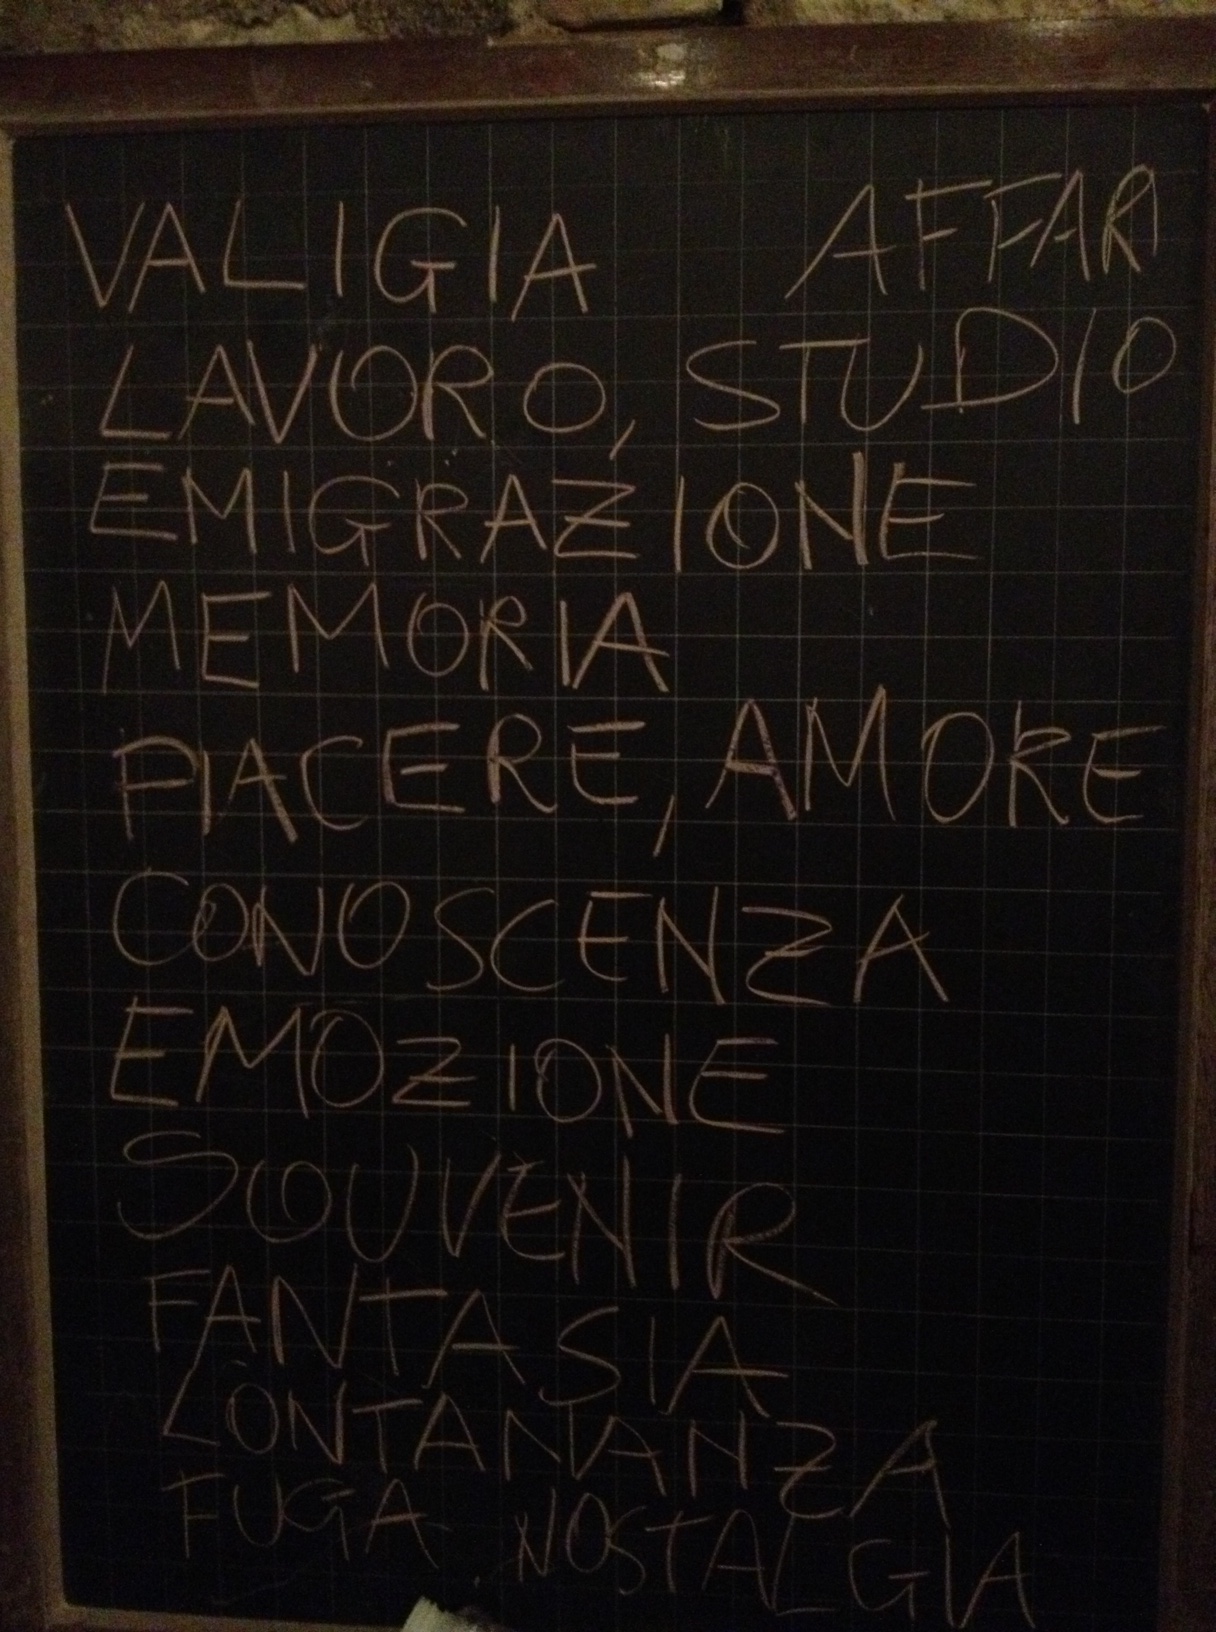 VALIGIA AFFARI
LAVORO, STUDIO
EMIGRAZIONE
MEMORIA
PIACERE, AMORE
CONOSCENZA
EMOZIONE
SOUVENIR
FANTASIA
LONTANANZA
FUGA NOSTALGIA